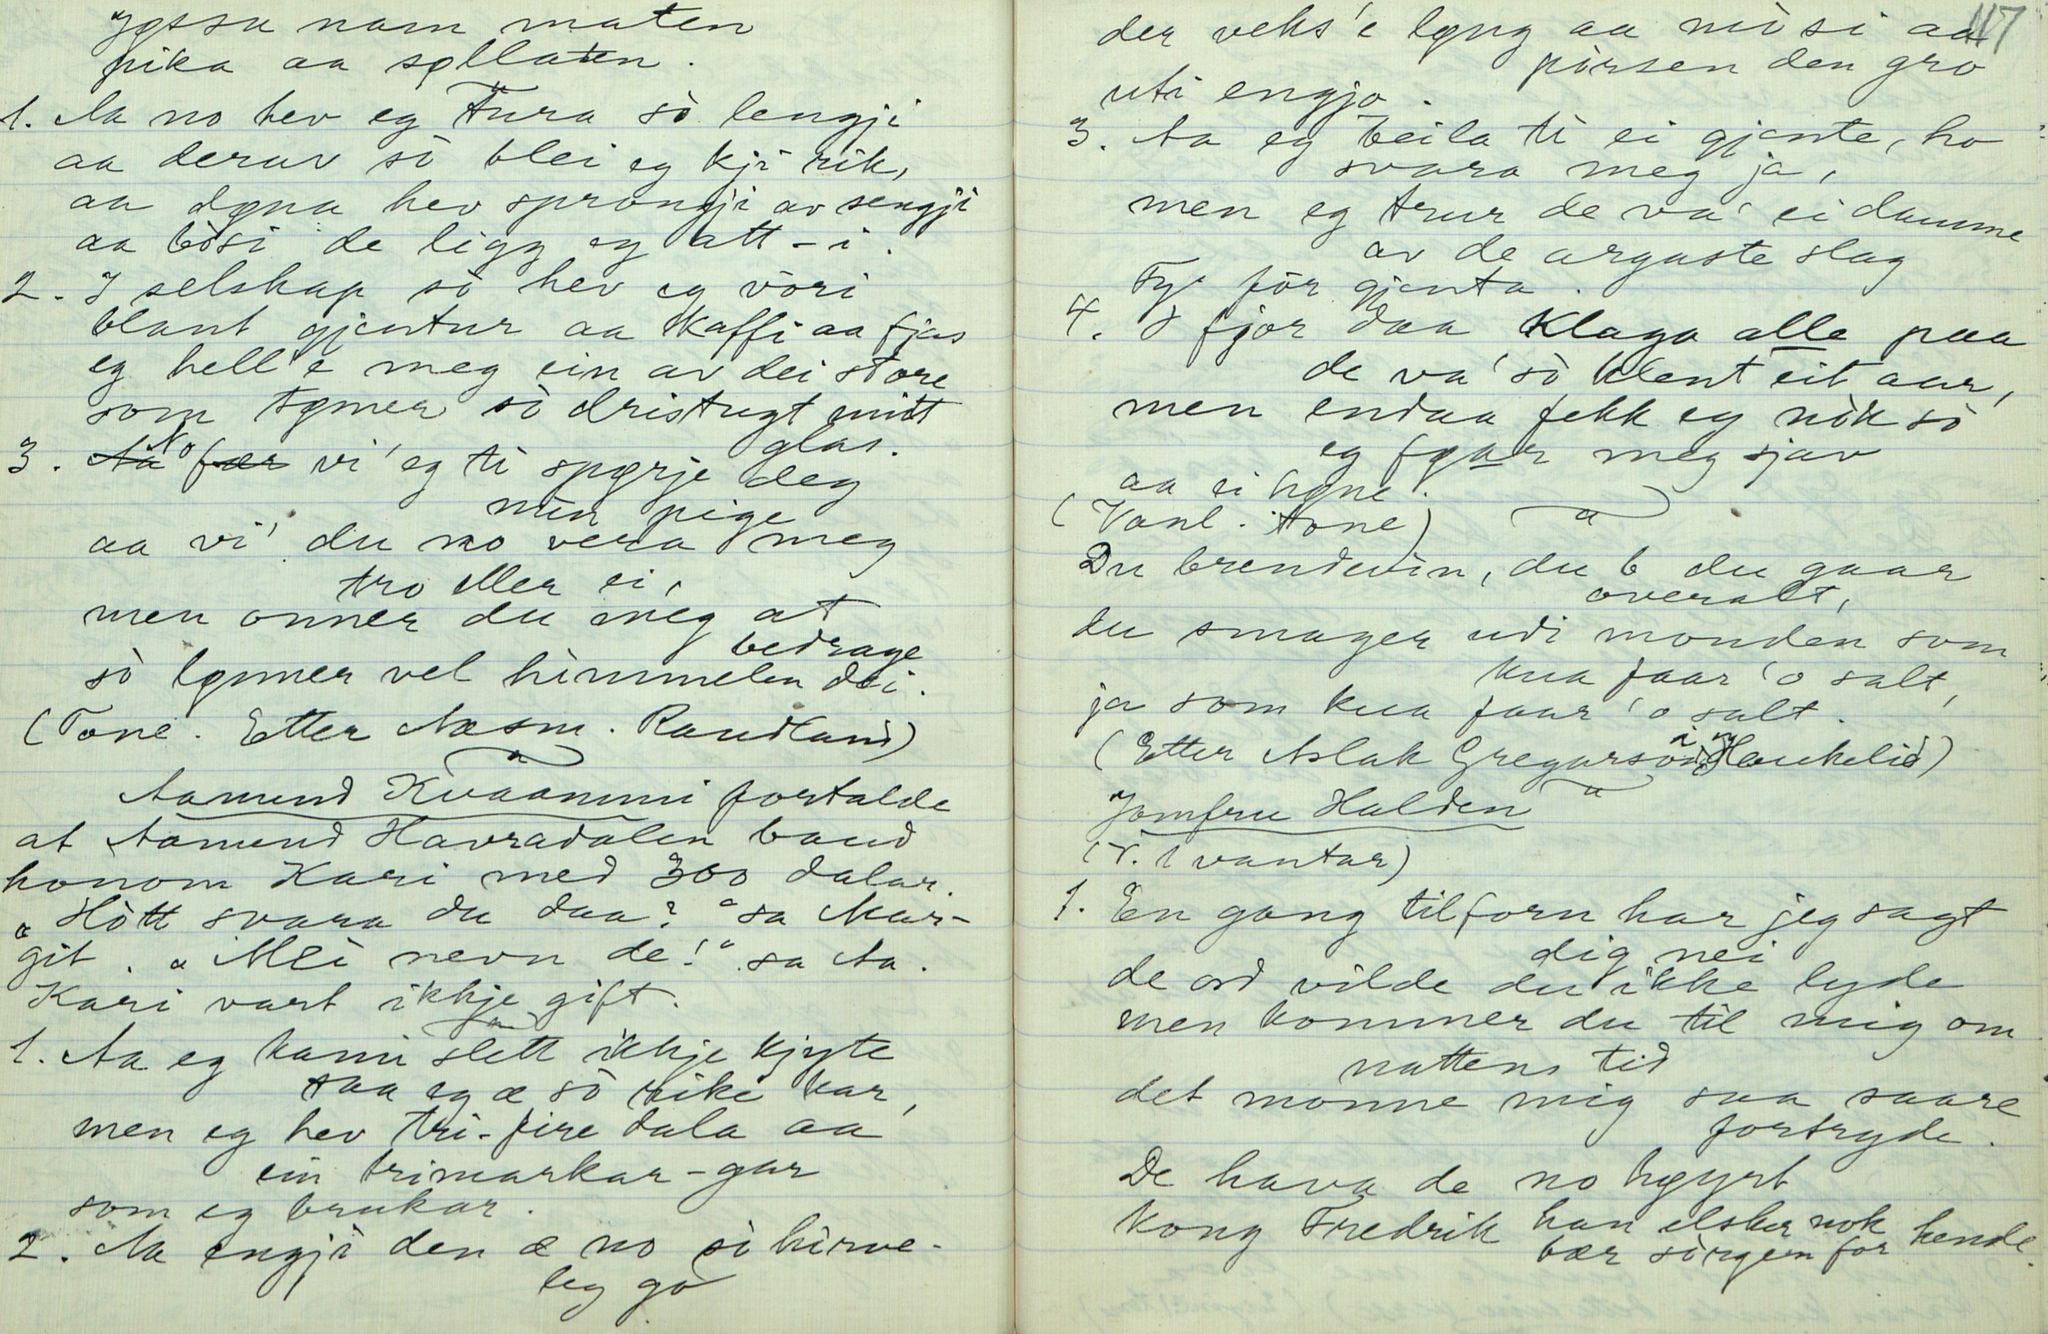 Jøssu nam maten
pika aa søllaten.
1. Aa no hev eg tura sò lengji
aa derav sò blei eg kji rik,
aa døna hev sprongji av sengji
aa bòsi de ligg eg att-i.
2. I selskap sò hev eg vòri
blant gjentur aa kaffi aa fjas
eg hell'e meg ein av dei store
som tømer sò dristugt mitt
glas.
3. No vi' eg ti spørje deg
min pige
aa vi' du no vera meg
tro eller ei,
men onner du meg at
bedrage
sò lønner vel himmelen dei.
(Tone. Etter Aasm. Raudland)
Aamund Kvaanmi fortalde
at Aamund Havradalen baud
honom Kari med 300 dalar.
"Hòtt svara du daa?" sa Mar-
git. "Mei nevn de!" sa Aa.
Kari vart ikkje gift.
1. Aa eg kann slett ikkje kjyte
aa eg æ sò rike kar,
men eg hev tri-fire dala aa
ein trimarkar-gar
som eg brukar.
2. Aa engji den æ no sò hirve-
leg go
der veks'e lyng aa mòsi aa
pòrsen den gro
uti engjo.
3. Aa eg beila ti ei gjente, ho
svara meg ja,
men eg trur de va' ei damme
av de argaste slag
Fy' fòr gjenta.
4. I fjor daa klaga alle paa
de va' sò klent eit aar,
men endaa fekk eg nòk sò
eg føar meg sjav
aa ei høne.
(Vanl. tone)
Du brendevin, du b du gaar
overalt,
du smager udi monden som
kua faar 'o salt,
ja som kua faar 'o salt.
(Etter Aslak Gregarson i Haukelid)
Jomfru Halden
(V. 1 vantar)
1. En gang tilforn har jeg sagt
dig nei
de ord vilde du ikke lyde
men kommer du til mig om
nattens tid
det monne mig saa saare
fortryde.
De hava de no høyrt
Kong Fredrik han elsker nok
bær sòrgen for hende.
117